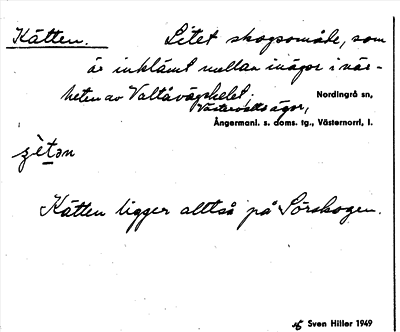 Kätten. Litet skogsområde, som
är inklämt mellan inägor i när-
heten av Valtåvägskelet. Nordingrå sn,
ägor,
Ångermanl. s. doms. tg., Västernorrl, l.
Kätten ligger alltså på Sörskogen.
Sven Hiller 1949